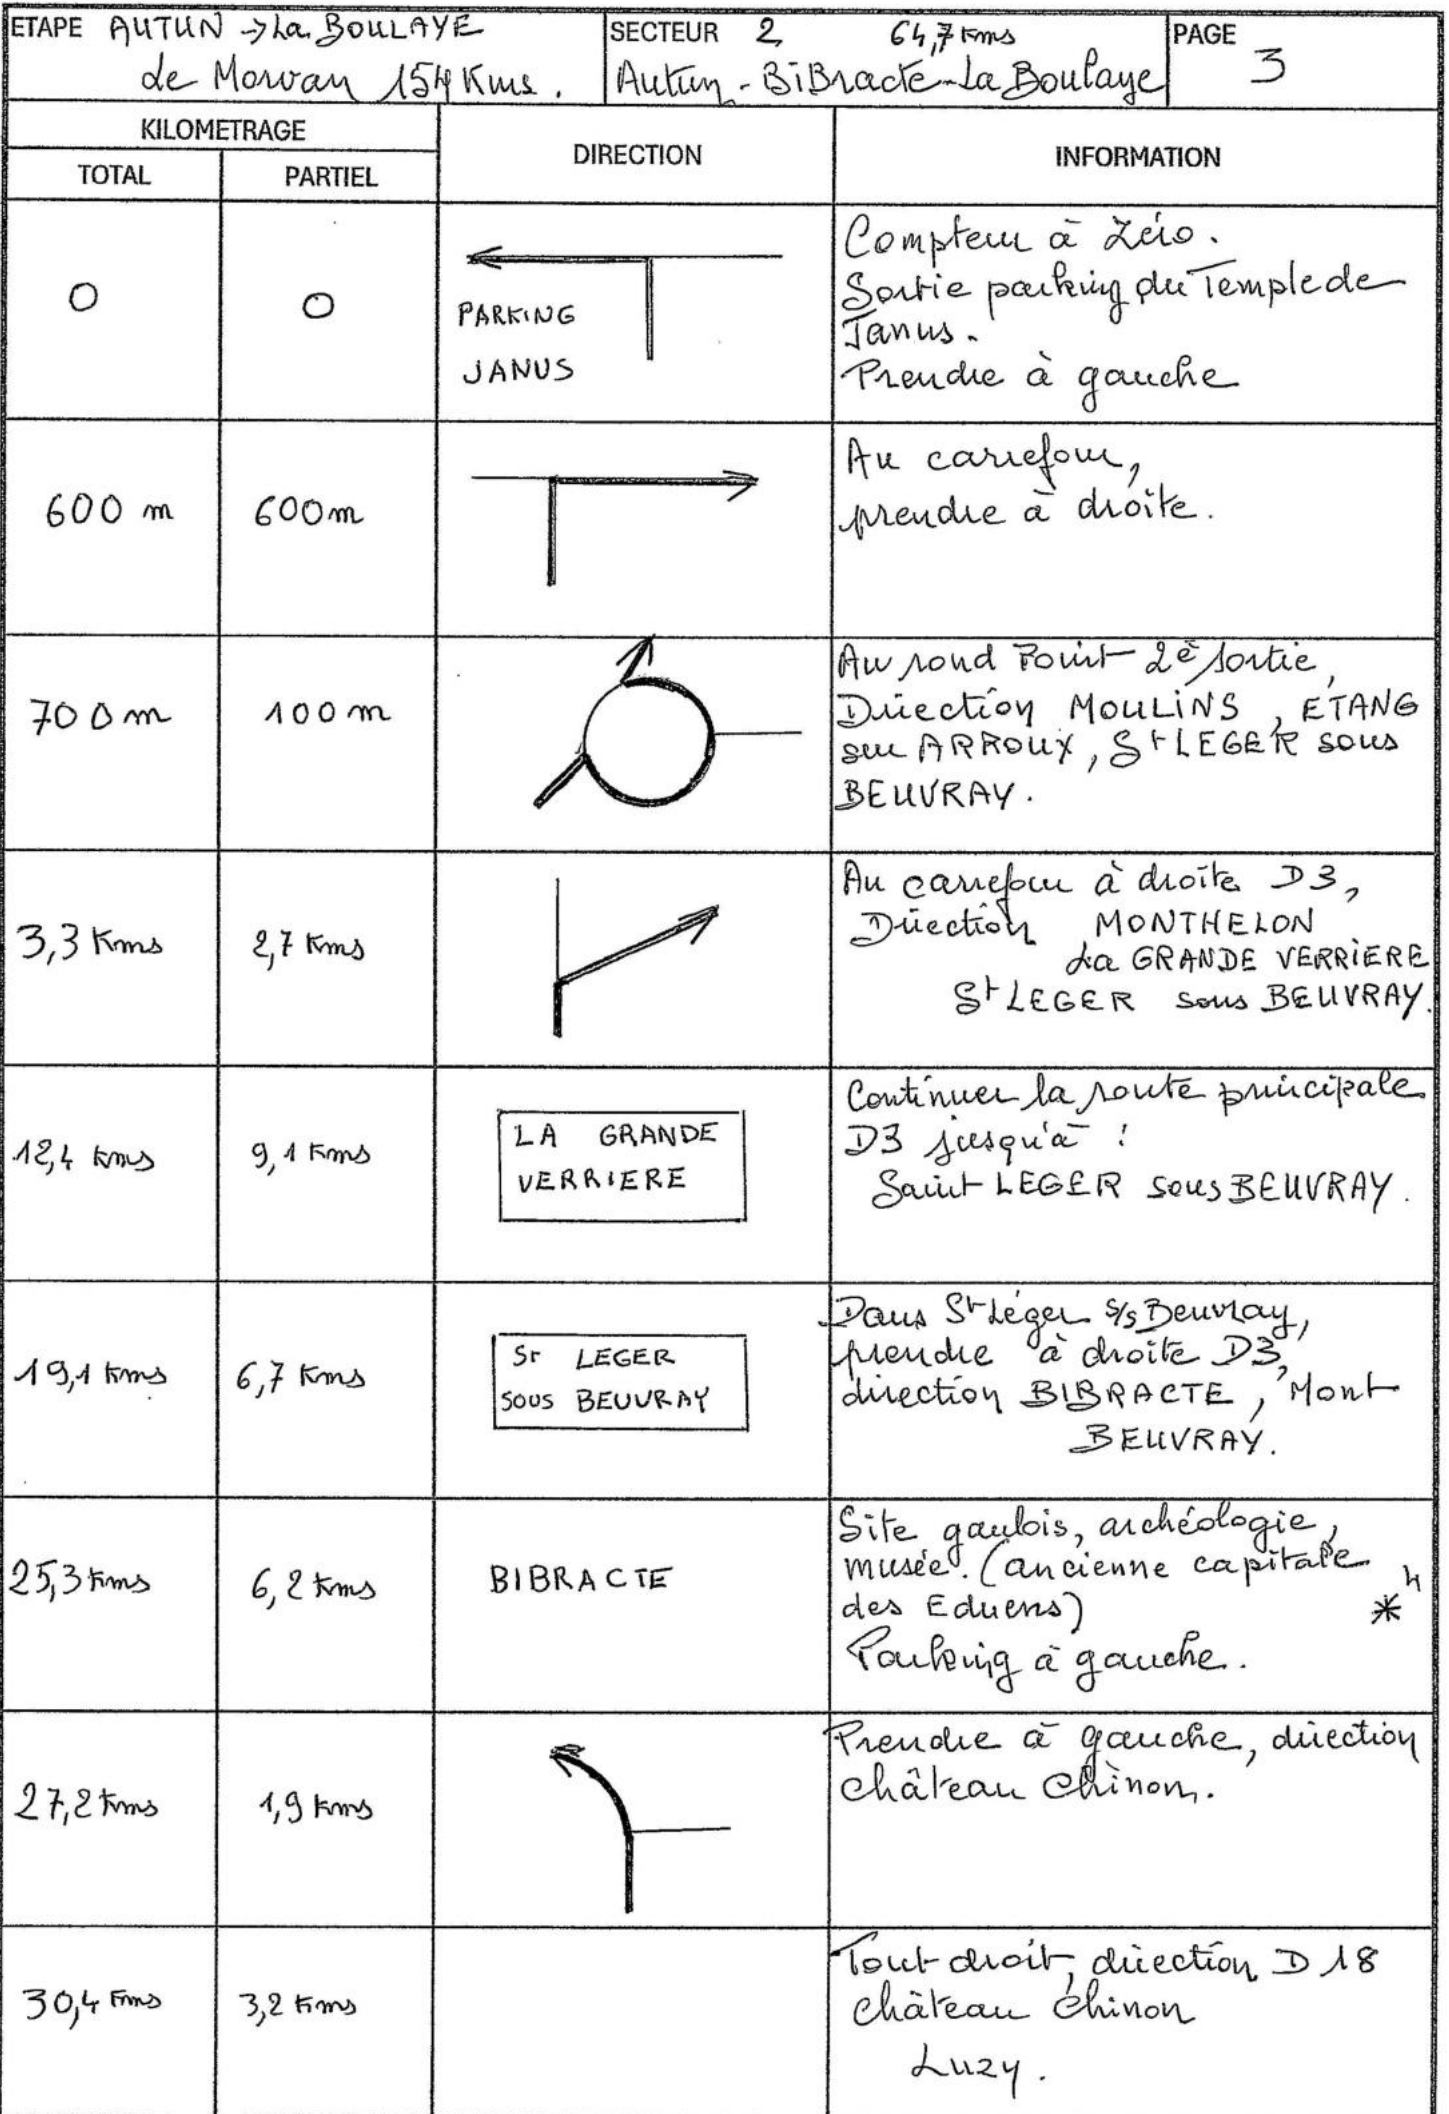 ETAPE AUTUN → La BOULAYE
de Morvan 154 Kms.
SECTEUR 2 64,7 Kms
Autun - BiBracte - La Boulaye
PAGE
3
KILOMETRAGE
TOTAL
PARTIEL
DIRECTION
INFORMATION
0
0
PARKING
JANUS
Compteur à Zéro.
Sortie parking du Temple de
Janus.
Prendre à gauche
600 m
600 m
Au carrefour,
prendre à droite.
700 m
100 m
Au rond Point 2è sortie,
Direction MOULINS, ETANG
sur ARROUX, St LEGER sous
BEUVRAY.
3,3 Kms
2,7 Kms
Au carrefour à droite D3,
Direction MONTHELON
La GRANDE VERRIERE
St LEGER sous BEUVRAY.
12,4 Kms
9,1 Kms
LA GRANDE
VERRIERE
Continuer la route principale
D3 jusqu'à :
Saint LEGER sous BEUVRAY.
19,1 Kms
6,7 Kms
St LEGER
SOUS BEUVRAY
Dans St Léger s/s Beuvray,
prendre à droite D3,
direction BIBRACTE, Mont
BEUVRAY.
25,3 Kms
6,2 Kms
BIBRACTE
Site gaulois, archéologie,
musée. (ancienne capitale
des Eduens) *4
Parking à gauche.
27,2 Kms
1,9 Kms
Prendre à gauche, direction
château Chinon.
30,4 Kms
3,2 Kms
Tout droit, direction D 18
Château Chinon
Luzy.